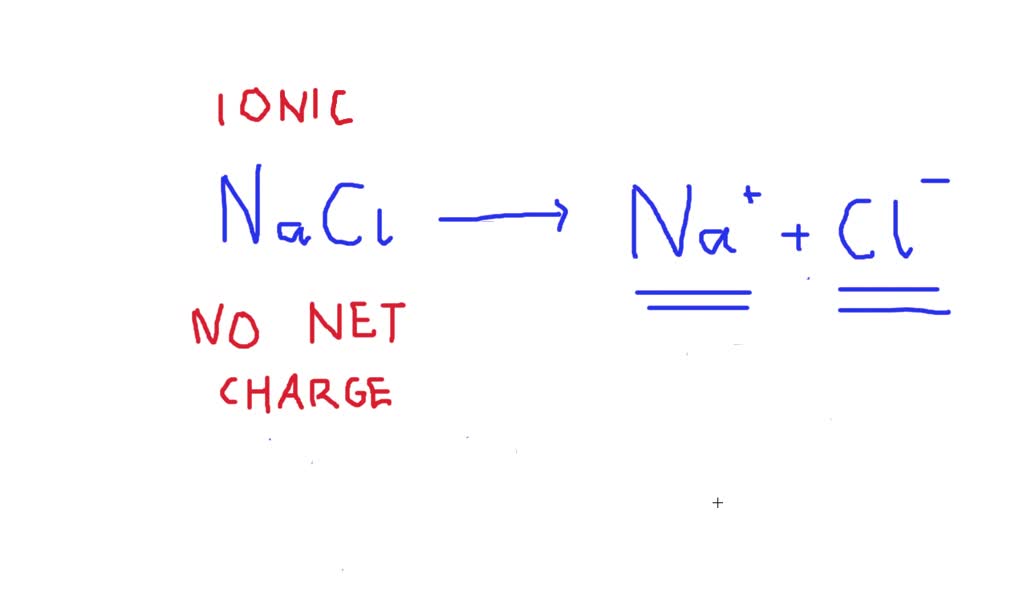 IONIC
NaCl → Na⁺ + Cl⁻
NO NET
CHARGE